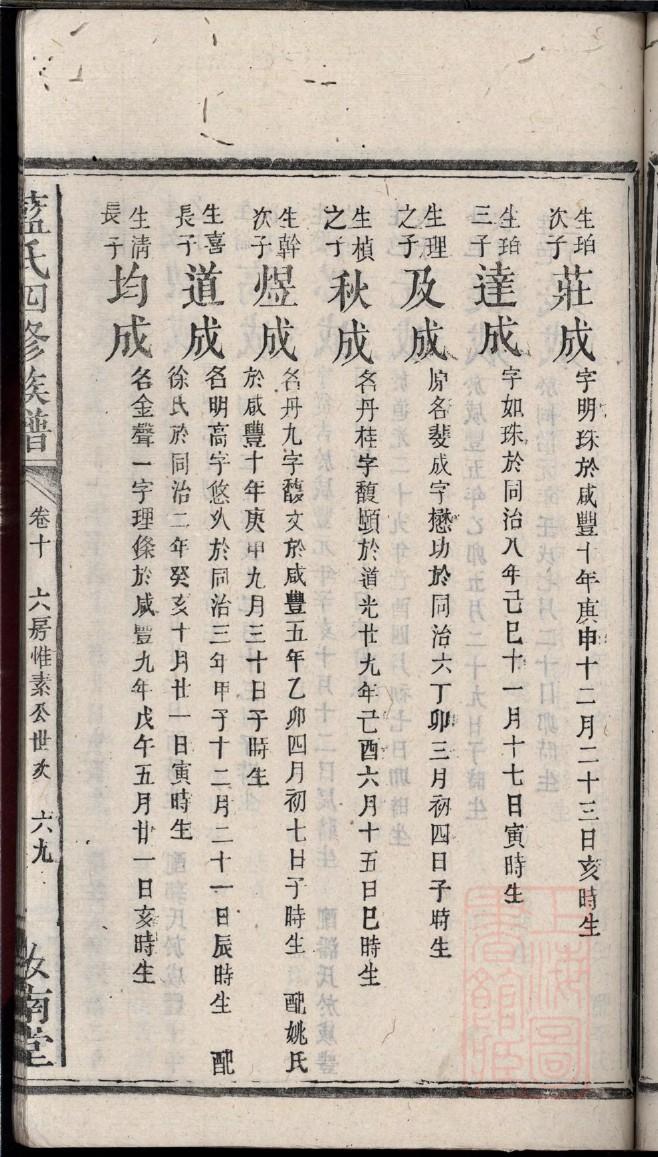 生珀次子莊成字明珠於咸豐十年庚申十二月二十三日亥時生
生珀三子達成字如珠於同治八年己巳十一月十七日寅時生
生理之子及成原名斐成字懋功於同治六丁卯三月初四日子時生
生楨之子秋成名丹桂字馥顕於道光廿九年己酉六月十五日巳時生
生幹次子煜成名丹九字馥文於咸豐五年乙卯四月初七日子時生 配姚氏
於咸豐十年庚申九月三十日子時生
生喜長子道成名明高字悠久於同治三年甲子十二月二十一日辰時生 配
徐氏於同治二年癸亥十月廿一日寅時生
生淸長子均成名金聲一字理條於咸豐九年戊午五月廿一日亥時生
藍氏四修族譜 卷十 六房惟素公世次 六九 汝南堂
上海圖書館藏